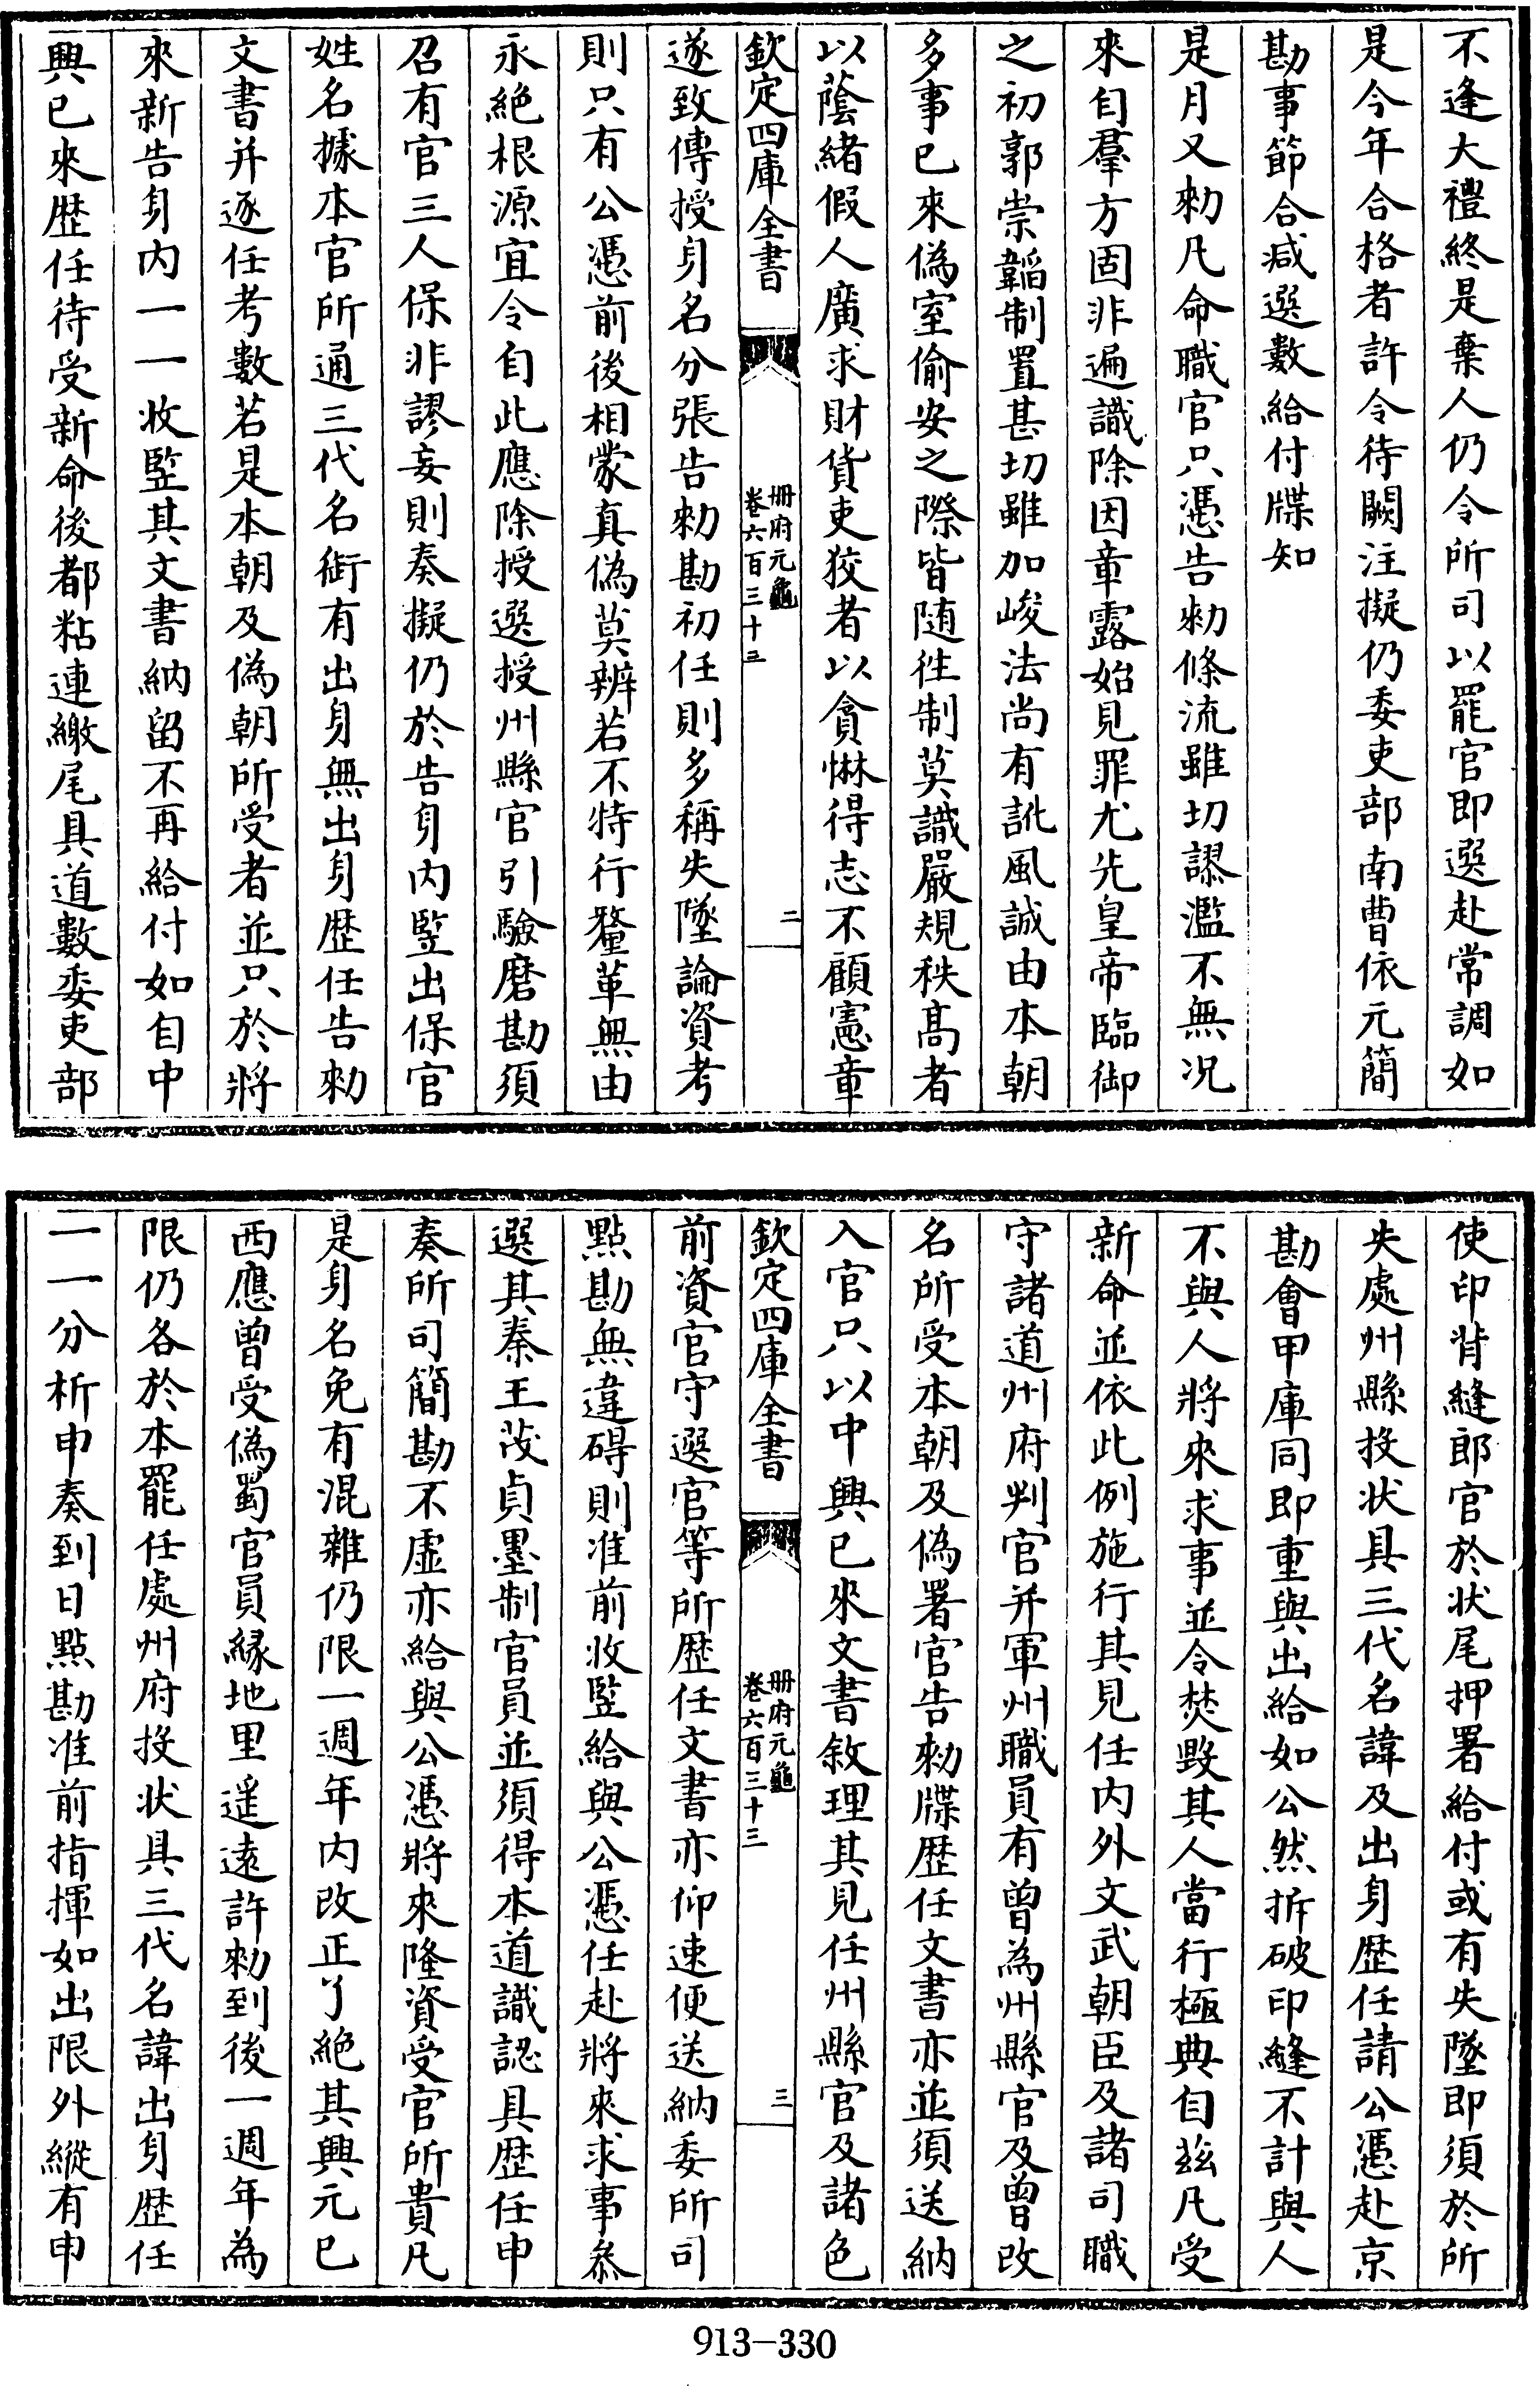 不逢大禮終是棄人仍令所司以罷官即選赴常調如
是今年合格者許令待闕注擬仍委吏部南曹依元簡
勘事節合減選數給付牒知
是月又勑凡命職官只憑告勑條流雖切謬濫不無况
來自羣方固非遍識除因章露始見罪尤先皇帝臨御
之初郭崇韜制置甚切雖加峻法尚有訛風誠由本朝
多事已來偽室偷安之際皆随徃制莫識嚴規秩髙者
以蔭緒假人廣求財貨吏狡者以貪惏得志不顧憲章
欽定四庫全書
冊府元龜
卷六百三十三
二
遂致傳授身名分張告勑勘初任則多稱失墜論資考
則只有公憑前後相蒙真偽莫辨若不特行釐革無由
永絶根源宜令自此應除授選授州縣官引驗磨勘須
召有官三人保非謬妄則奏擬仍於告身内竪出保官
姓名據本官所通三代名銜有出身無出身歴任告勑
文書并逐任考數若是本朝及偽朝所受者並只於將
來新告身内一一收竪其文書納留不再給付如自中
興已來歴任待受新命後都粘連繳尾具道數委吏部
使印背縫郎官於狀尾押署給付或有失墜即須於所
失處州縣投狀具三代名諱及出身歴任請公憑赴京
勘會甲庫同即重與出給如公然拆破印縫不計與人
不與人將來求事並令焚毀其人當行極典自兹凡受
新命並依此例施行其見任内外文武朝臣及諸司職
守諸道州府判官并軍州職員有曾為州縣官及曾改
名所受本朝及偽署官告勑牒歴任文書亦並須送納
入官只以中興已來文書敘理其見任州縣官及諸色
欽定四庫全書
冊府元龜
卷六百三十三
三
前資官守選官等所歴任文書亦仰速便送納委所司
點勘無違碍則准前收竪給與公憑任赴將來求事叅
選其秦王茂貞墨制官員並須得本道識認具歴任申
奏所司簡勘不虚亦給與公憑將來隆資受官所貴凡
是身名免有混雜仍限一週年内改正了絶其興元已
西應曾受偽蜀官員縁地里遥逺許勑到後一週年為
限仍各於本罷任處州府投狀具三代名諱出身歴任
一一分析申奏到日點勘准前指揮如出限外縱有申
913-330